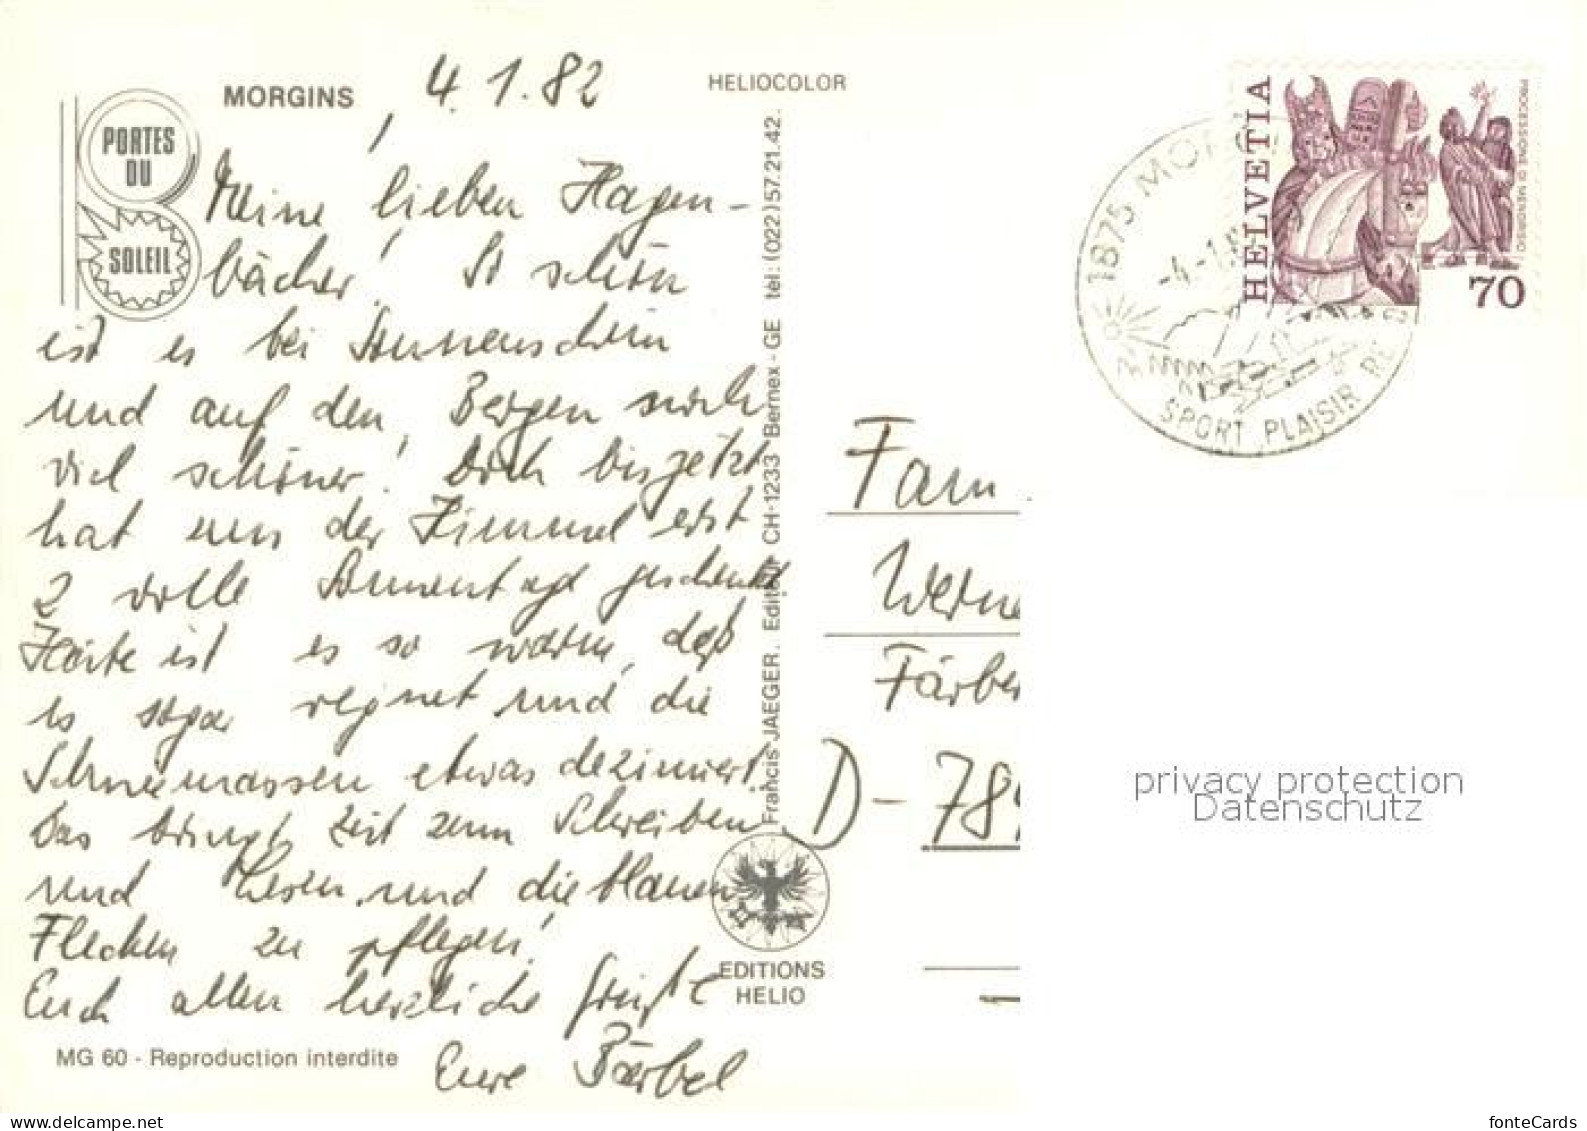 MORGINS
4.1.82
HELIOCOLOR
PORTES
DU
SOLEIL
Meine lieben Hagen-
bächer! So schön
ist es bei Sonnenschein
und auf den Bergen noch
viel schöner! Doch bis jetzt
hat uns der Himmel erst
2 volle Sonnentage geschenkt
Heute ist es so warm, daß
es sogar regnet und die
Schneemassen etwas dezimiert.
Das bringt Zeit zum Schreiben
und Lesen und die blauen
Flecken zu pflegen!
Euch allen herzliche Grüße
Eure Bärbel
MG 60 - Reproduction interdite
Francis JAEGER. Editeur CH-1233 Bernex - GE tél: (022) 57.21.42.
EDITIONS
HELIO
HELVETIA
PROCESSIONE DI MENDRISIO
70
1875 MORG
-4.-1.8
SPORT PLAISIR RE
Fam
Werne
Färbe
D-789
privacy protection
Datenschutz
www.delcampe.net
fonteCards